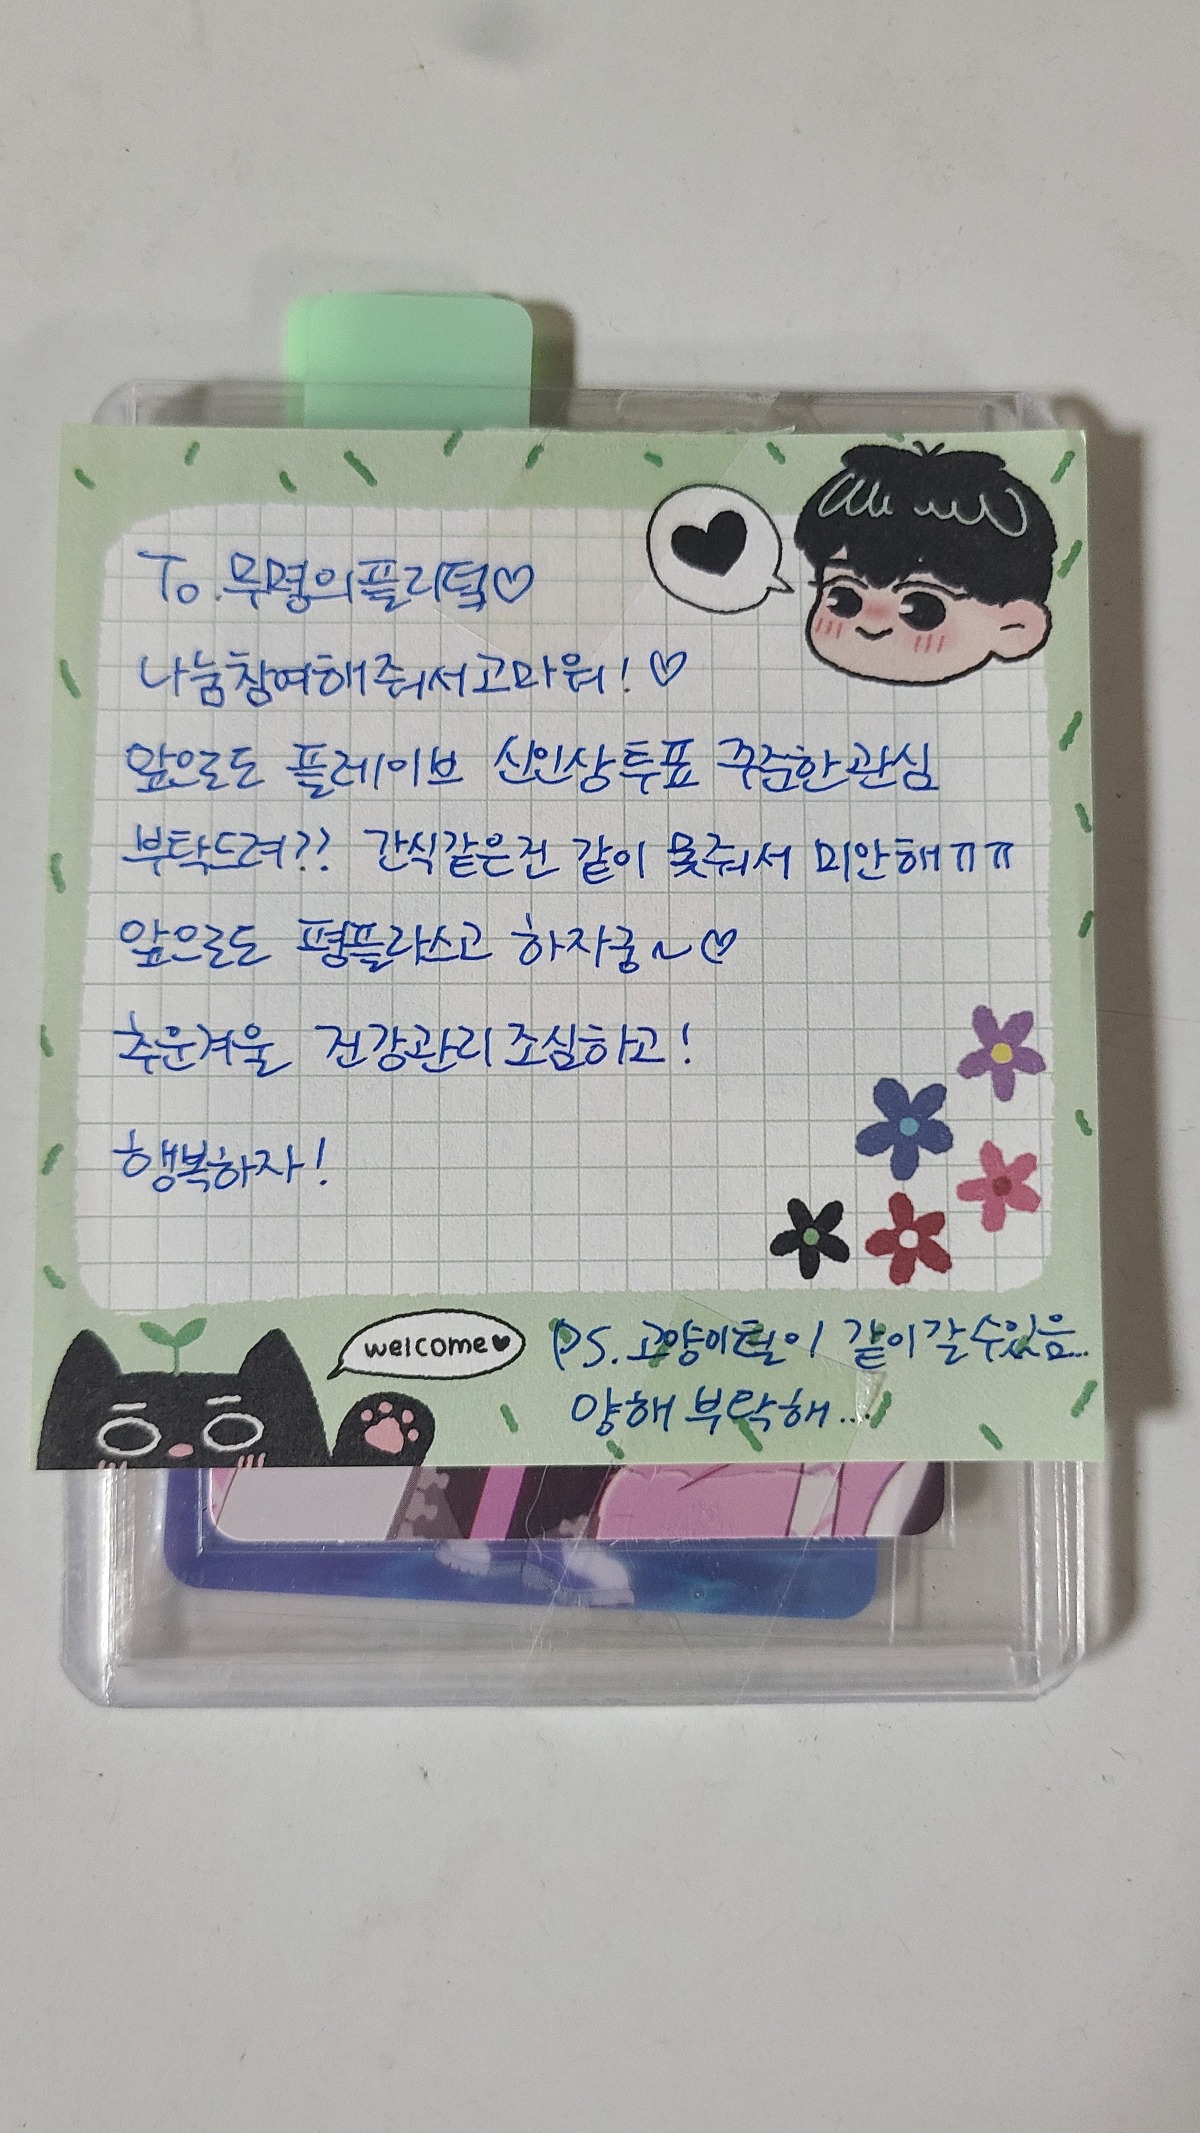 To. 무명의플리털♡
나눔참여해줘서고마워! ♡
앞으로도 플레이브 신인상투표 꾸준한관심
부탁드려?? 간식같은건 같이 못줘서 미안해ㅠㅠ
앞으로도 평플라스고 하자궁~♡
추운겨울 건강관리조심하고!
행복하자!
welcome♥
PS. 고양이털이 같이갈수있음..
양해 부탁해...